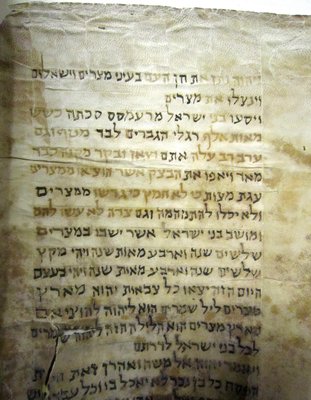 ויהוה נתן את חן העם בעיני מצרים וישאלום
וינצלו את מצרים
ויסעו בני ישראל מרעמסס סכתה כשש
מאות אלף רגלי הגברים לבד מטף וגם
ערב רב עלה אתם וצאן ובקר מקנה כבד
מאד ויאפו את הבצק אשר הוציאו ממצרים
עגת מצות כי לא חמץ כי גרשו ממצרים
ולא יכלו להתמהמה וגם צדה לא עשו להם
ומושב בני ישראל אשר ישבו במצרים
שלשים שנה וארבע מאות שנה ויהי מקץ
שלשים שנה וארבע מאות שנה ויהי בעצם
היום הזה יצאו כל צבאות יהוה מארץ
מצרים ליל שמרים הוא ליהוה להוציאם
מארץ מצרים הוא הלילה הזה ליהוה שמרים
לכל בני ישראל לדרתם
ויאמר יהוה אל משה ואהרן זאת חקת
הפסח כל בן נכר לא יאכל בו וכל